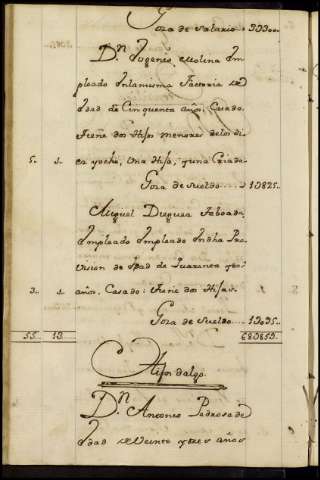 Goza de salario
Dn. Eugenio Molina Em
pleado En la misma Factoria de
Edad de Cinquenta años, Casado,
tiene dos Hijos menores de los di
5. 1. ez y ocho, Una Hija, y una Criada
Goza de sueldo 1@825..
Miguel Dieguez Taboada,
Empleado Empleado En dha Pro
vision de Edad de Quarenta y
3. 1. años, Casado: tiene dos Hijas.
Goza de sueldo 1@095..
55. 13. 68@859.
Hijos dalgo.
Dn. Antonio Pedrosa de
Edad de Veinte y tres años